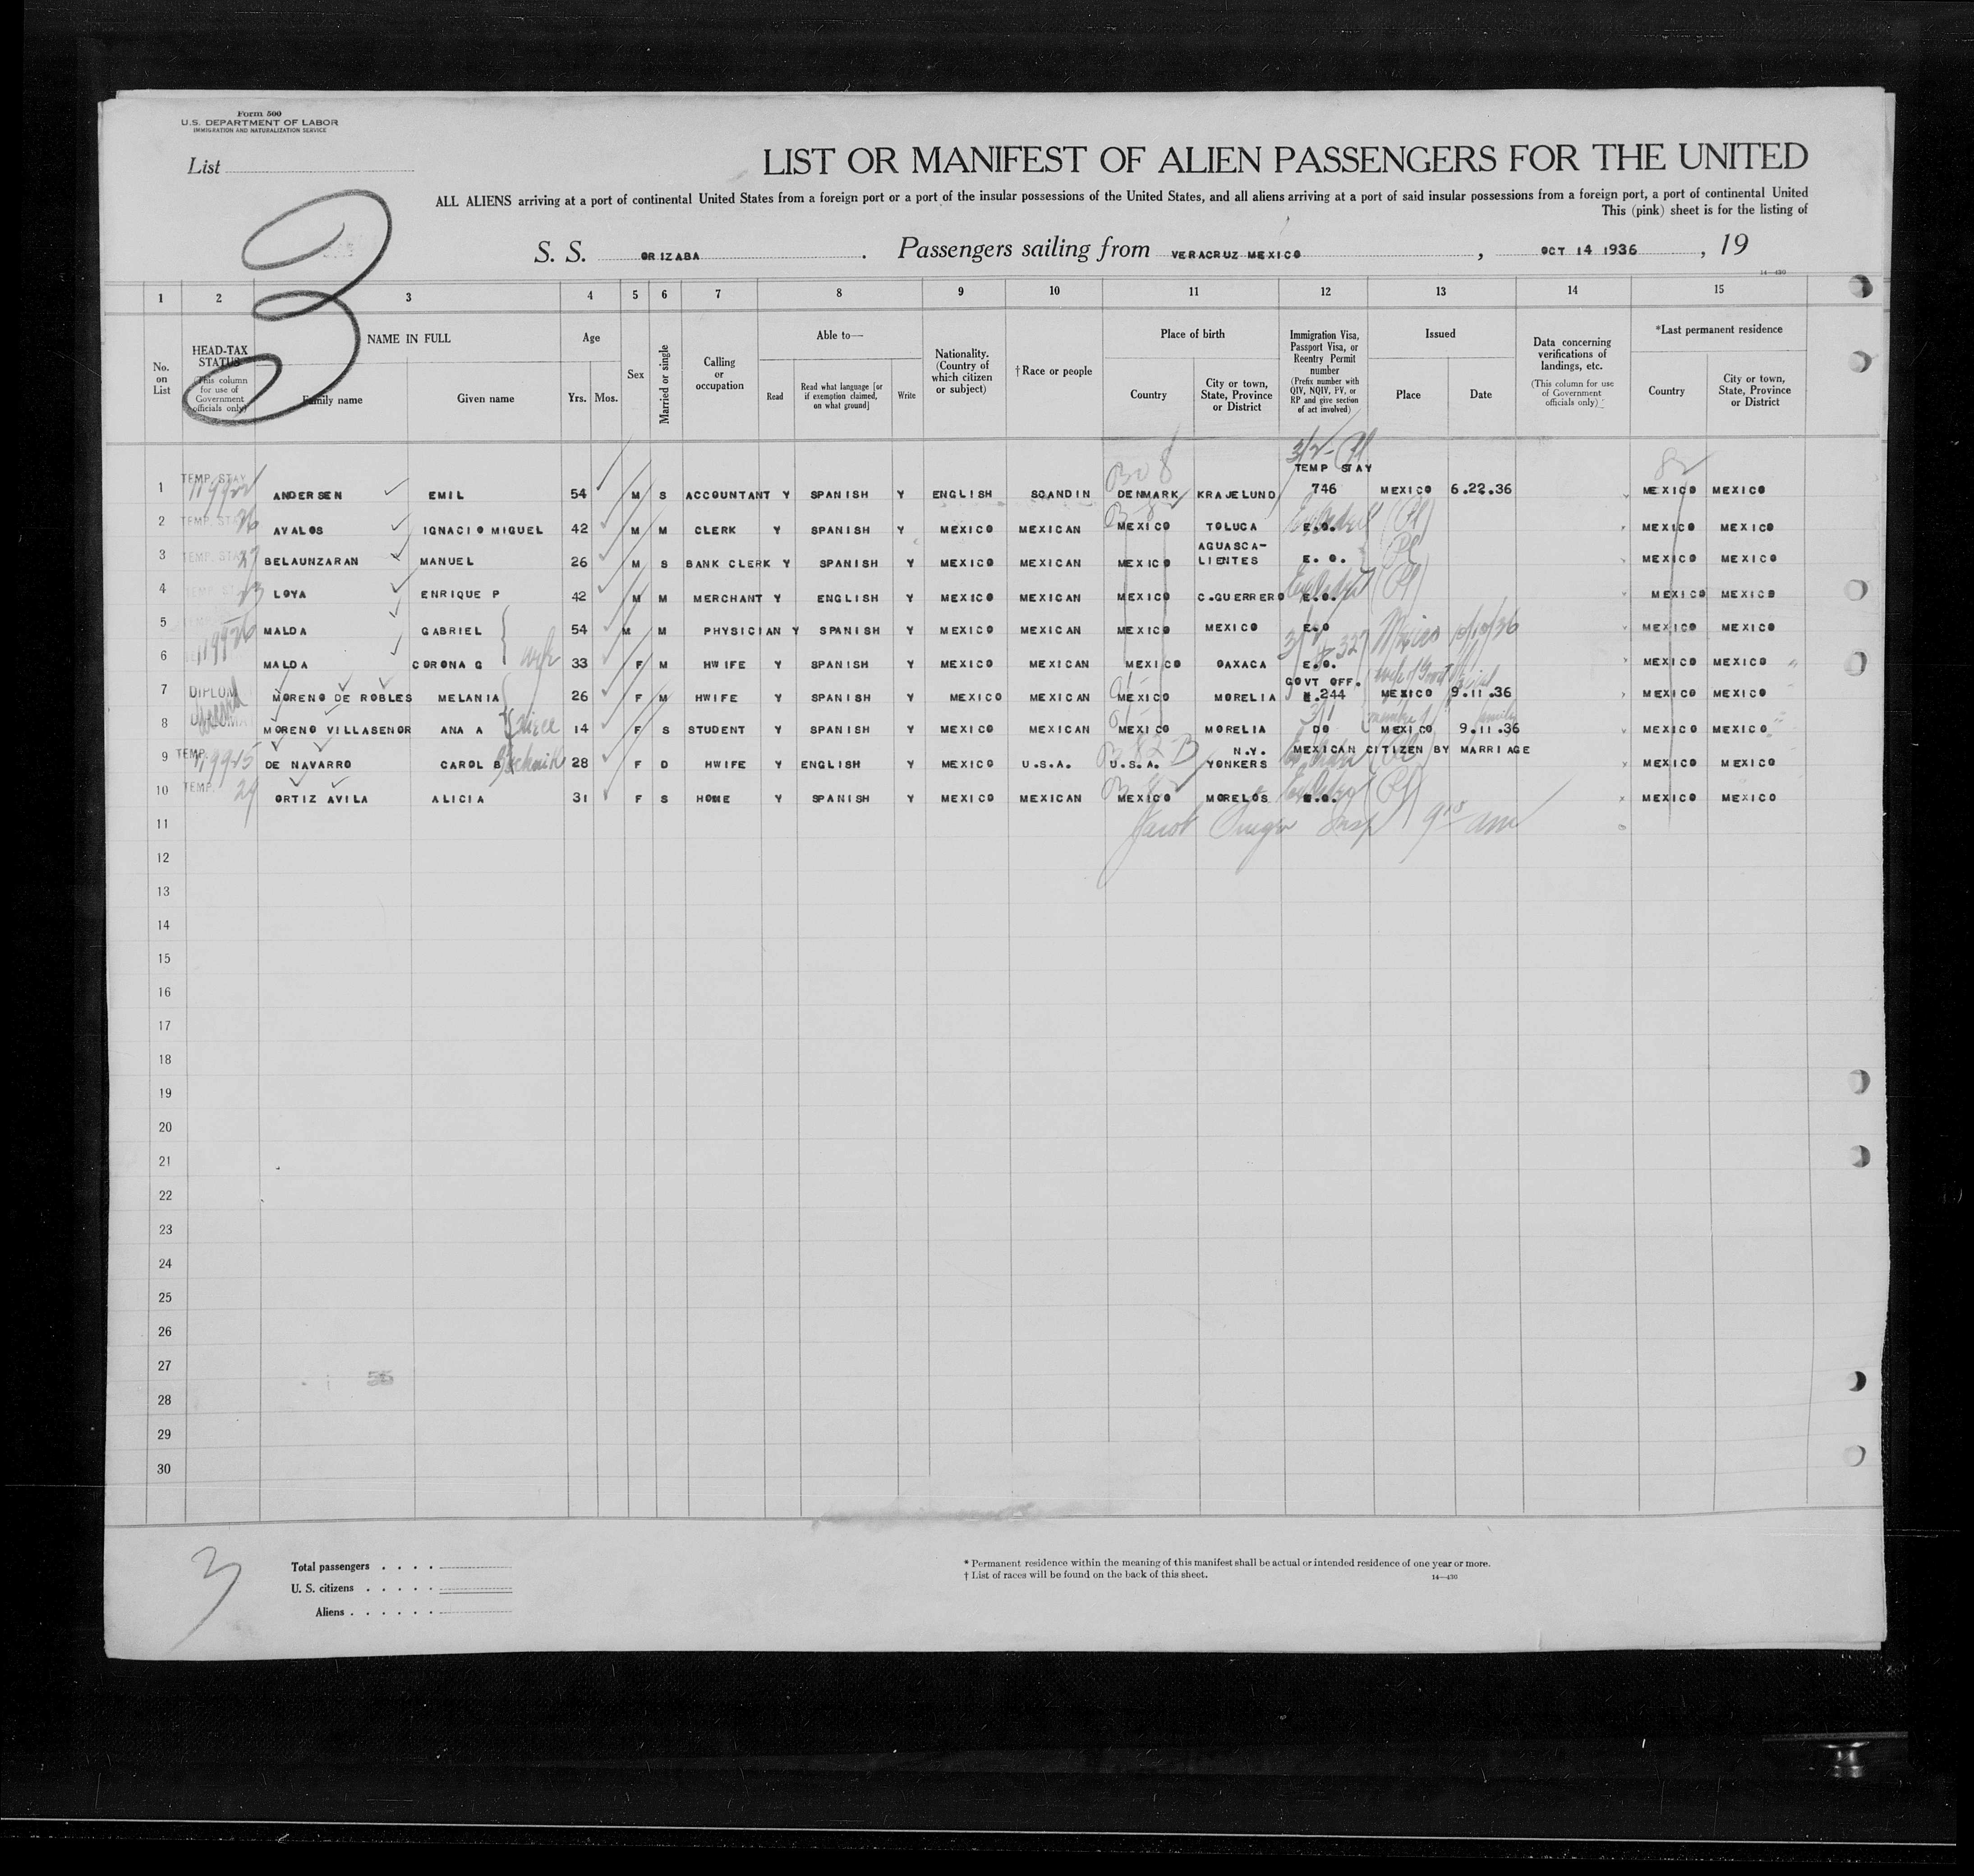 Form 500
U.S. DEPARTMENT OF LABOR
IMMIGRATION AND NATURALIZATION SERVICE
List
3
LIST OR MANIFEST OF ALIEN PASSENGERS FOR THE UNITED
ALL ALIENS arriving at a port of continental United States from a foreign port or a port of the insular possessions of the United States, and all aliens arriving at a port of said insular possessions from a foreign port, a port of continental United
This (pink) sheet is for the listing of
S. S. ORIZABA. Passengers sailing from VERACRUZ MEXICO, OCT 14 1936, 19
14—430
1 2 3 4 5 6 7 8 9 10 11 12 13 14 15
No. on List
HEAD-TAX STATUS (This column for use of Government officials only)
NAME IN FULL Family name Given name
Age Yrs. Mos.
Sex
Married or single
Calling or occupation
Able to— Read Read what language [or if exemption claimed, on what ground] Write
Nationality. (Country of which citizen or subject)
† Race or people
Place of birth Country City or town, State, Province or District
Immigration Visa, Passport Visa, or Reentry Permit number (Prefix number with QIV, NQIV, PV, or RP and give section of act involved)
Issued Place Date
Data concerning verifications of landings, etc. (This column for use of Government officials only)
*Last permanent residence Country City or town, State, Province or District
3/2
TEMP STAY
1 TEMP. STAY ANDERSEN EMIL 54 M S ACCOUNTANT Y SPANISH Y ENGLISH SCANDIN DENMARK KRAJELUND 746 MEXICO 6.22.36 MEXICO MEXICO
2 TEMP. STAY AVALOS IGNACIO MIGUEL 42 M M CLERK Y SPANISH Y MEXICO MEXICAN MEXICO TOLUCA E.O. MEXICO MEXICO
3 TEMP. STAY 27 BELAUNZARAN MANUEL 26 M S BANK CLERK Y SPANISH Y MEXICO MEXICAN MEXICO AGUASCA- LIENTES E. O. MEXICO MEXICO
4 LOYA ENRIQUE P 42 M M MERCHANT Y ENGLISH Y MEXICO MEXICAN MEXICO C.GUERRERO E.O. MEXICO MEXICO
5 MALDA GABRIEL 54 M M PHYSICIAN Y SPANISH Y MEXICO MEXICAN MEXICO MEXICO E.O MEXICO MEXICO
6 MALDA CORONA G wife 33 F M HWIFE Y SPANISH Y MEXICO MEXICAN MEXICO OAXACA E.O. MEXICO MEXICO
GOVT OFF.
7 DIPLOM MORENO DE ROBLES MELANIA 26 F M HWIFE Y SPANISH Y MEXICO MEXICAN MEXICO MORELIA 244 MEXICO 9.11.36 MEXICO MEXICO
8 MORENO VILLASENOR ANA A niece 14 F S STUDENT Y SPANISH Y MEXICO MEXICAN MEXICO MORELIA DO MEXICO 9.11.36 MEXICO MEXICO
9 TEMP. DE NAVARRO CAROL B 28 F D HWIFE Y ENGLISH Y MEXICO U.S.A. U.S.A. N.Y. YONKERS MEXICAN CITIZEN BY MARRIAGE MEXICO MEXICO
10 TEMP. 29 ORTIZ AVILA ALICIA 31 F S HOME Y SPANISH Y MEXICO MEXICAN MEXICO MORELOS E.O. MEXICO MEXICO
11
12
13
14
15
16
17
18
19
20
21
22
23
24
25
26
27
28
29
30
3
Total passengers
U. S. citizens
Aliens
* Permanent residence within the meaning of this manifest shall be actual or intended residence of one year or more.
† List of races will be found on the back of this sheet.
14—430